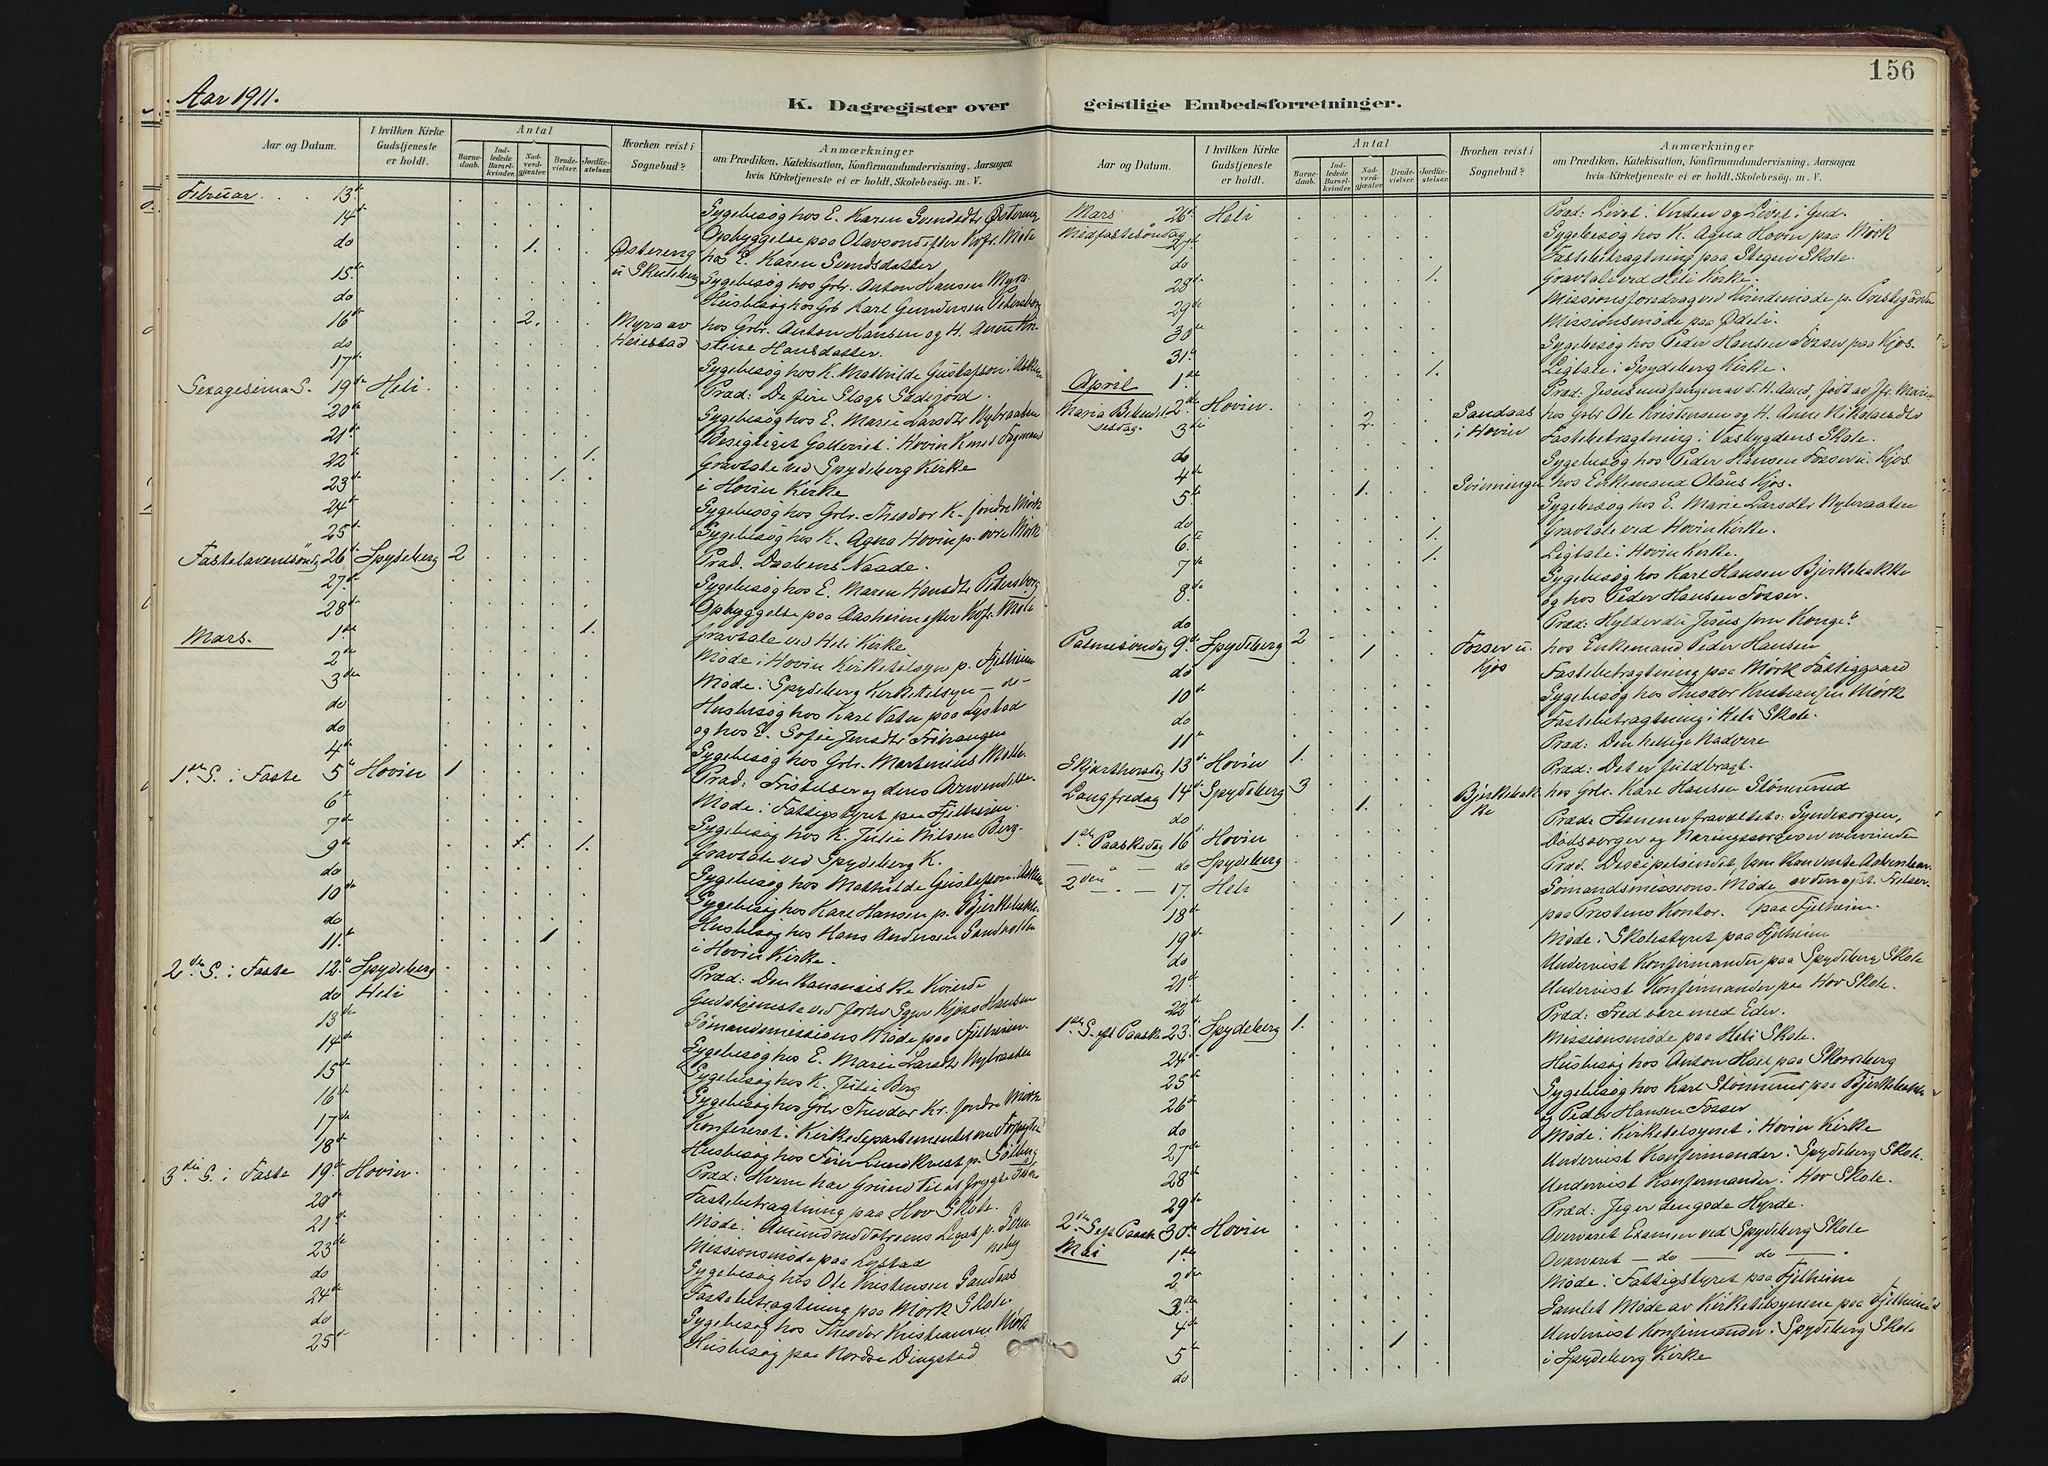 156
Aar 1911.
K. Dagregister over geistlige Embedsforretninger.
Aar og Datum.
I hvilken Kirke Gudstjeneste er holdt.
Antal
Barne-daab.
Ind-ledede Barsel-kvinder.
Nad-verd-gjæster.
Brude-vielser.
Jordfæ-stelser.
Hvorhen reist i Sognebud?
Anmærkninger
om Prædiken, Katekisation, Konfirmandundervisning, Aarsagen
hvis Kirketjeneste ei er holdt, Skolebesøg m. V.
Februar 13de Sygebesøg hos E. Karen Svendsdtr Østereng
14de Opbyggelse paa
do 1. Østereng u. Skuleberg hos E. Karen Svendsdatter
15de Sygebesøg hos Grbr. Anton Hansen Myra
do Husbesøg hos Grb Karl Gundersen
16de 2. Myra av hos Grbr. Anton Hansen og H. Anne
do steine Hansdatter.
17de Sygebesøg hos K. Mathilde Gustafson i Asken
Sexagesima S. 19de Heli. Præd: De fire Slags Sædejord.
20de Sygebesøg hos E. Marie Larsdtr Nybraaten
21de Besigtiget Galleriet i Hovin K med Fagmand
22de 1. Gravtale ved Spydeberg Kirke
23de 1. i Hovin Kirke
24de Sygebesøg hos Grbr. Theodor K. søndre Mørk
25de Sygebesøg hos K. Agna Hovin p. øvre Mørk
Fastelavenssøndg 26de Spydeberg 2 Præd. Daabens Naade.
27de Sygebesøg hos E. Maren Hansdtr Petersborg
28de Opbyggelse paa Aasheim efter Kvf. Møde
Mars. 1ste 1. Gravtale ved Heli Kirke
2de Møde i Hovin Kirketilsyn p. Fjelheim
3die Møde i Spydeberg Kirketilsyn — do —
do Husbesøg hos Karl Vatn paa Lystad
do og hos E. Sofie Jensdtr
4de Sygebesøg hos Grbr. Martinius
1ste S. i Faste 5te Hovin 1 Præd: Fristelser og deres Anvendelse
6te Møde i Fattigstyret paa Fjelheim.
7de Sygebesøg hos K. Julie Nilsen Berg.
9de 1. Gravtale ved Spydeberg K.
do Sygebesøg hos Mathilde Gustafson i Asken
10de Sygebesøg hos Karl Hansen p. Bjerkebakke
do Husbesøg hos Hans Andersen Sandvolden
11te 1 i Hovin Kirke.
2den S. i Faste 12te Spydeberg Præd: Den kananæiske Kvinde
do Heli Gudstjeneste ved
13de Sømandsmissions Møde paa Fjelheim
14de Sygebesøg hos E. Marie Larsdtr Nybraaten
15de Sygebesøg hos K. Julie Berg
16de Sygebesøg hos Grbr Theodor Kr. søndre Mørk
17de Konfereret i Kirkedepartementet om
18de Husbesøg hos
3die S. i Faste 19de Hovin. Præd: Hvem har Grund til at frygte
20de Fastebetragtning paa Hov Skole.
21de Møde i
23de Missionsmøde paa Lystad
do Sygebesøg hos Ole Kristensen Sandaas
24de Fastebetragtning paa Mørk Skole.
do Sygebesøg hos Theodor Kristiansen Mørk
25de Husbesøg paa Nordre Dingstad
Aar og Datum.
I hvilken Kirke Gudstjeneste er holdt.
Antal
Barne-daab.
Ind-ledede Barsel-kvinder.
Nad-verd-gjæster.
Brude-vielser.
Jordfæ-stelser.
Hvorhen reist i Sognebud?
Anmærkninger
om Prædiken, Katekisation, Konfirmandundervisning, Aarsagen
hvis Kirketjeneste ei er holdt, Skolebesøg m. V.
Mars 26de Heli Præd: Livet i Verden og Livet i Gud.
Midfastesøndag 27de Sygebesøg hos K. Agna Hovin paa Mørk
do Fastebetragtning paa Stegen Skole.
28de 1. Gravtale ved Heli Kirke
29de Missionsforedrag ved Kvindemøde p. Prestegaarden
30de Missionsmøde paa Ødeli.
31te Sygebesøg hos Peder Hansen Fosser paa Kjos.
April 1ste 1. Ligtale i Spydeberg Kirke.
Maria Bebudelsesdag 2den Hovin. Præd:
3de 2. Sandaas i Hovin hos Grbr Ole Kristensen og H. Anne Nikolaisdtr
do Fastebetragtning i Vasbygdens Skole.
4de Sygebesøg hos Peder Hansen Fosser u. Kjos.
5te 1. Svinningen hos Enkemand Olaus Kjos.
do Sygebesøg hos E. Marie Larsdtr Nybraaten
6te 1. Gravtale ved Hovin Kirke.
7de 1. Ligtale i Hovin Kirke.
8de Sygebesøg hos Karl Hansen Bjerkebakke
do og hos Peder Hansen Fosser.
Palmesøndag 9de Spydeberg 2 Præd: Hylder du Jesus som Konge?
do 1 Fosser u. Kjos hos Enkemand Peder Hansen
10de Fastebetragtning paa Mørk Fattiggaard
do Sygebesøg hos Theodor Kristiansen Mørk
11te Fastebetragtning i Heli Skole.
Skjærthorsdag 13de Hovin 1. Præd: Den hellige Nadvere
Langfredag 14de Spydeberg 3 Præd: Det er fuldbragt.
do 1. Bjerkebakke hos Grbr. Karl Hansen Stømnerud
1ste Paaskedag 16de Hovin Præd: Stenene fravæltets: Syndesorgen,
— " — do Spydeberg Dødssorgen og Næringssorgen overvunden
2den — " — 17. Heli Præd.
18de 1 Sømandsmissions-Møde
19de paa Prestens Kontor. paa Fjelheim.
do Møde i Skolestyret paa Fjelheim
21de Undervist Konfirmander paa Spydeberg Skole
22de Undervist Konfirmander paa Hov Skole.
1ste S. eft Paaske 23de Spydeberg 1. Præd: Fred være med Eder.
24de Missionsmøde paa Heli Skole.
25de Husbesøg hos Anton Hasl paa Skovsberg
26de Sygebesøg hos Karl Stømnerud paa Bjerkebakke
do og Peder Hansen Fosser
27de Møde i Kirketilsynet i Hovin Kirke
28de Undervist Konfirmander i Spydeberg Skole.
29de Undervist Konfirmander i Hov Skole.
2den S eft Paaske 30te Hovin Præd: Jeg er den gode Hyrde.
Mai 1ste Overværet Examen ved Spydeberg Skole
2den Overværet — do — do — "
3die Møde i Fattigstyret paa Fjelheim
4de Samlet Møde av Kirketilsynene paa Fjelheim
5te Undervist Konfirmander i Spydeberg Skole
do 1 i Spydeberg Kirke